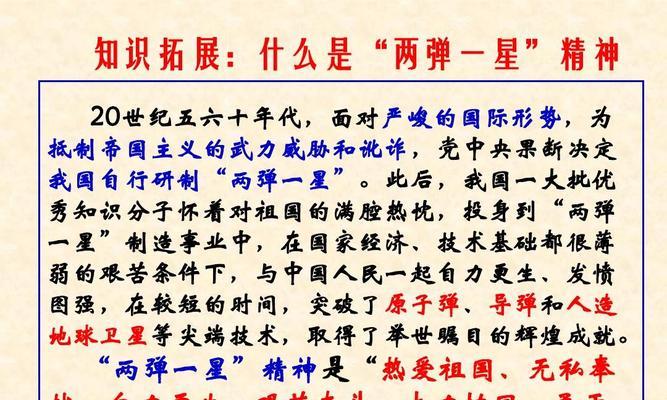 知识拓展：什么是“两弹一星”精神
20世纪五六十年代，面对严峻的国际形势，为
抵制帝国主义的武力威胁和讹诈，党中央果断决定
我国自行研制“两弹一星”。此后，我国一大批优
秀知识分子怀着对祖国的满腔热忱，投身到“两弹
一星”制造事业中，在国家经济、技术基础都很薄
弱的艰苦条件下，与中国人民一起自力更生、发愤
图强，在较短的时间，突破了原子弹、导弹和人造
地球卫星等尖端技术，取得了举世瞩目的辉煌成就。
“两弹一星”精神是“热爱祖国、无私奉